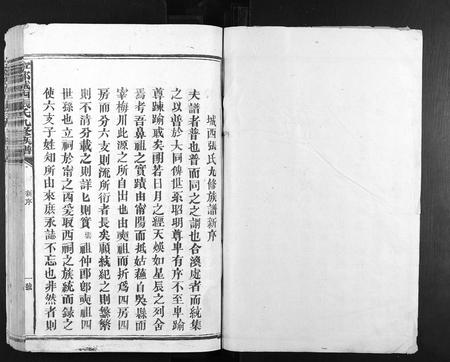 城西張氏九修族譜新序
夫譜者普也普而同之之謂也合渙處者而統集
之以普於大同俾世系昭明尊卑有序不至卑踰
尊踈踰戚矣閱若日月之經天煥如星辰之列舍
焉考吾鼻祖之實蹟由甯陽而抵姑蘓自吳縣而
宰梅川此源之所自出也由奭祖而折為四房四
房而分六支則流所衍者長矣顧統紀之則繁繁
則不清分載之則詳詳則實 祖仲郎郎奭祖四
世孫也立祠於甯之西爰取西祠之族統而錄之
使六支子姓知所由來庶永誌不忘也非然者則
新序
一